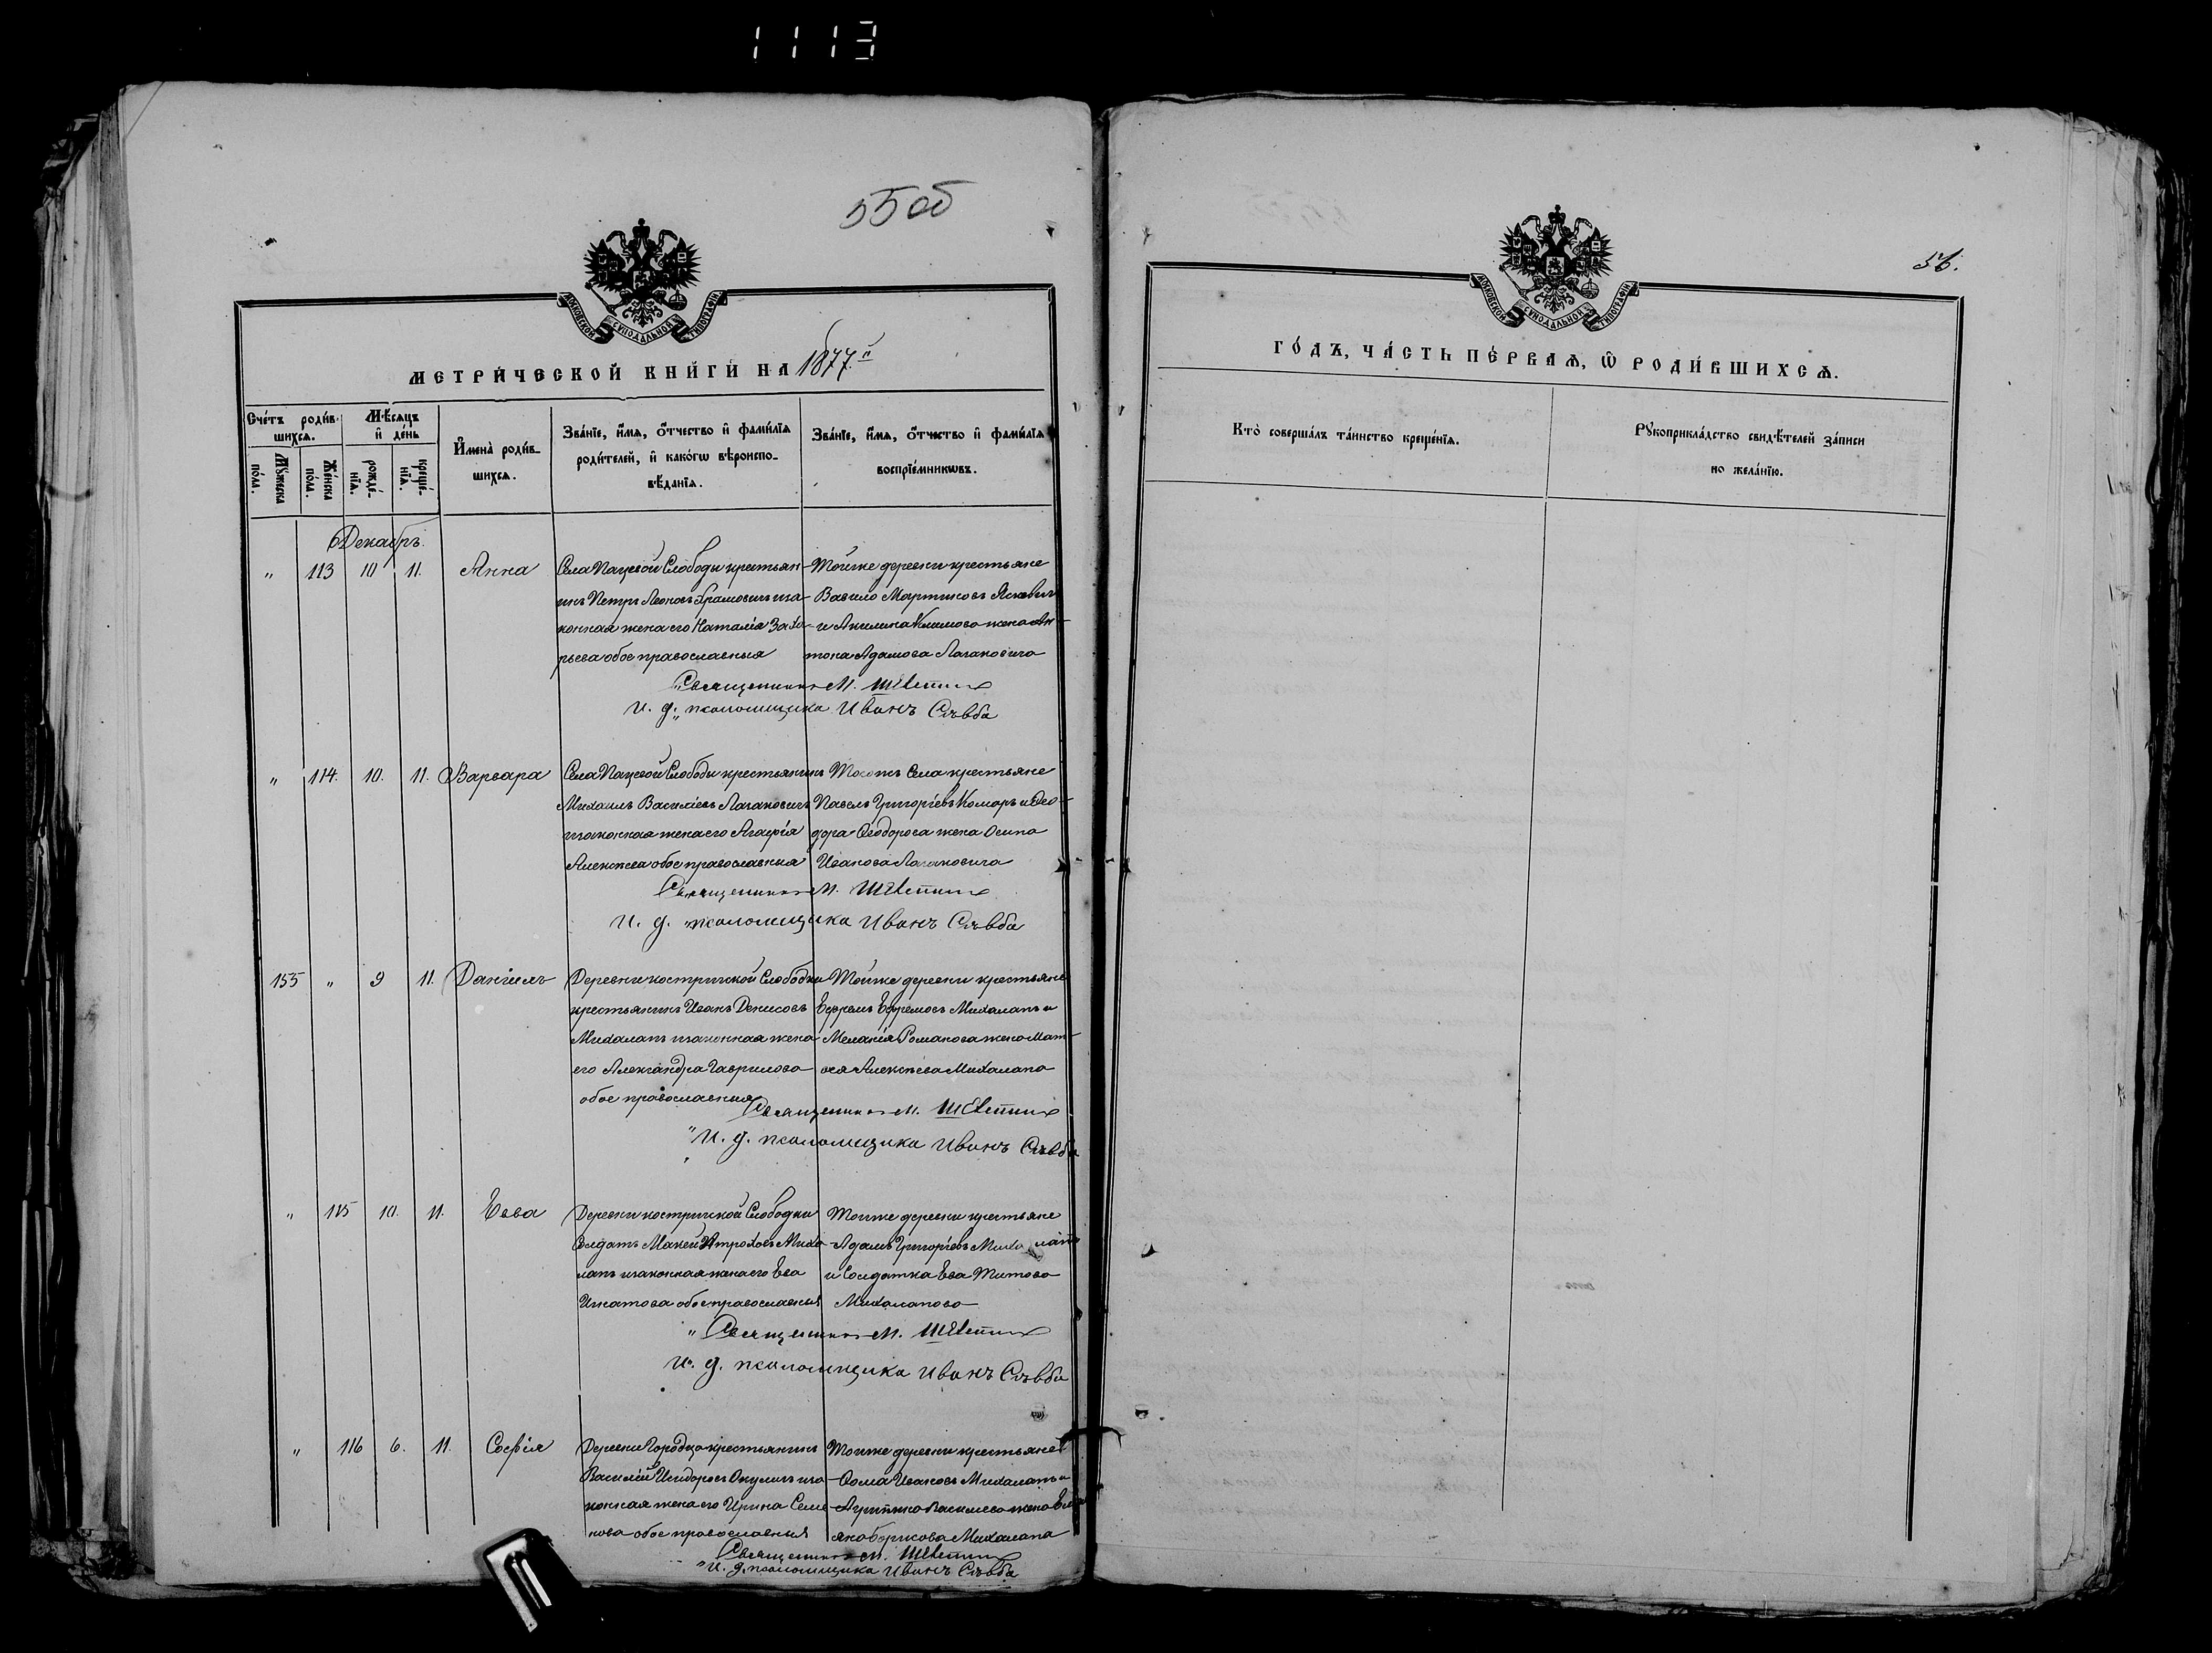 1113
55 об
МОСКОВСКОЙ СѴНОДАЛЬНОЙ ТИПОГРАФІИ
МЕТРИ́ЧЕСКОЙ КНИ́ГИ НА 1877й
Сче́тъ роди́в-
шихсѧ.
Мꙋ́жеска по́ла.
Же́нска по́ла.
Мѣ́сѧцъ и де́нь
рожде́нїѧ.
креще́нїѧ.
Имена̀ роди́в-
шихсѧ.
Зва́нїе, и́мѧ, о́тчество и фами́лїѧ
роди́телей, и како́гѡ вѣроиспо-
вѣ́данїѧ.
Зва́нїе, и́мѧ, о́тчество и фами́лїѧ
воспрїе́мникѡвъ.
Декабрь.
" 113 10 11. Анна
Села Пацевой Слободы крестьян-
инъ Петръ Леоновъ Храмовичъ иза-
конная жена его Наталія Заха-
рьева обое православныя
Тойже деревни крестьяне
Вавило Мартиновъ
и Акилина Климова жена Ан-
тона Адамова Лагановича
Священникъ М.
И. д. псаломщика Иванъ Слѣвба
" 114. 10. 11. Варвара
Села Пацевой Слободы крестьянинъ
Михаилъ Василіевъ Лагановичъ
изаконная жена его Агафія
Алексѣева обое православныя
Тогожъ Села крестьяне
Павелъ Григоріевъ Комаръ и Ѳео-
дора Ѳеодорова жена Осипа
Иванова Лагановича
Священникъ М.
И. д. псаломщика Иванъ Слѣвба
155 " 9 11. Даніилъ
Деревни костричской Слободки
крестьянинъ Иванъ Денисовъ
Михалапъ изаконная жена
его Александра Гаврилова
обое православныя
Тойже деревни крестьяне
Ефремъ Ефремовъ Михалапъ и
Меланія Романова жена Мат-
ѳея Алексѣева Михалапа
Священникъ М.
И. д. псаломщика Иванъ Слѣвба
" 115 10. 11. Евва
Деревни костричской Слободки
Солдатъ Макей Михо-
лапъ изаконная жена его Ева
Игнатова обое православныя
Тоиже деревни крестьяне
Адамъ Григоріевъ Михалапъ
и Солдатка Ева Титова
Михалапова
Священникъ М.
И. д. псаломщика Иванъ Слѣвба
" 116 6. 11. Софія
Деревни Городца крестьянинъ
Василій Исидоровъ Окуличъ иза-
конная жена его Ирина Семе-
нова обое православныя
Тоиже деревни крестьяне
Ѳома Ивановъ Михалапъ и
Агрипина Василиева жена
Михалапа
Священникъ М.
И. д. псаломщика Иванъ Слѣвба
56.
МОСКОВСКОЙ СѴНОДАЛЬНОЙ ТИПОГРАФІИ
ГО́ДЪ, ЧА́СТЬ ПЕ́РВАѦ, Ѡ РОДИ́ВШИХСѦ.
Кто̀ соверша́лъ та́инство креще́нїѧ.
Рꙋкоприкла́дство свидѣ́телей за́писи
по жела́нїю.